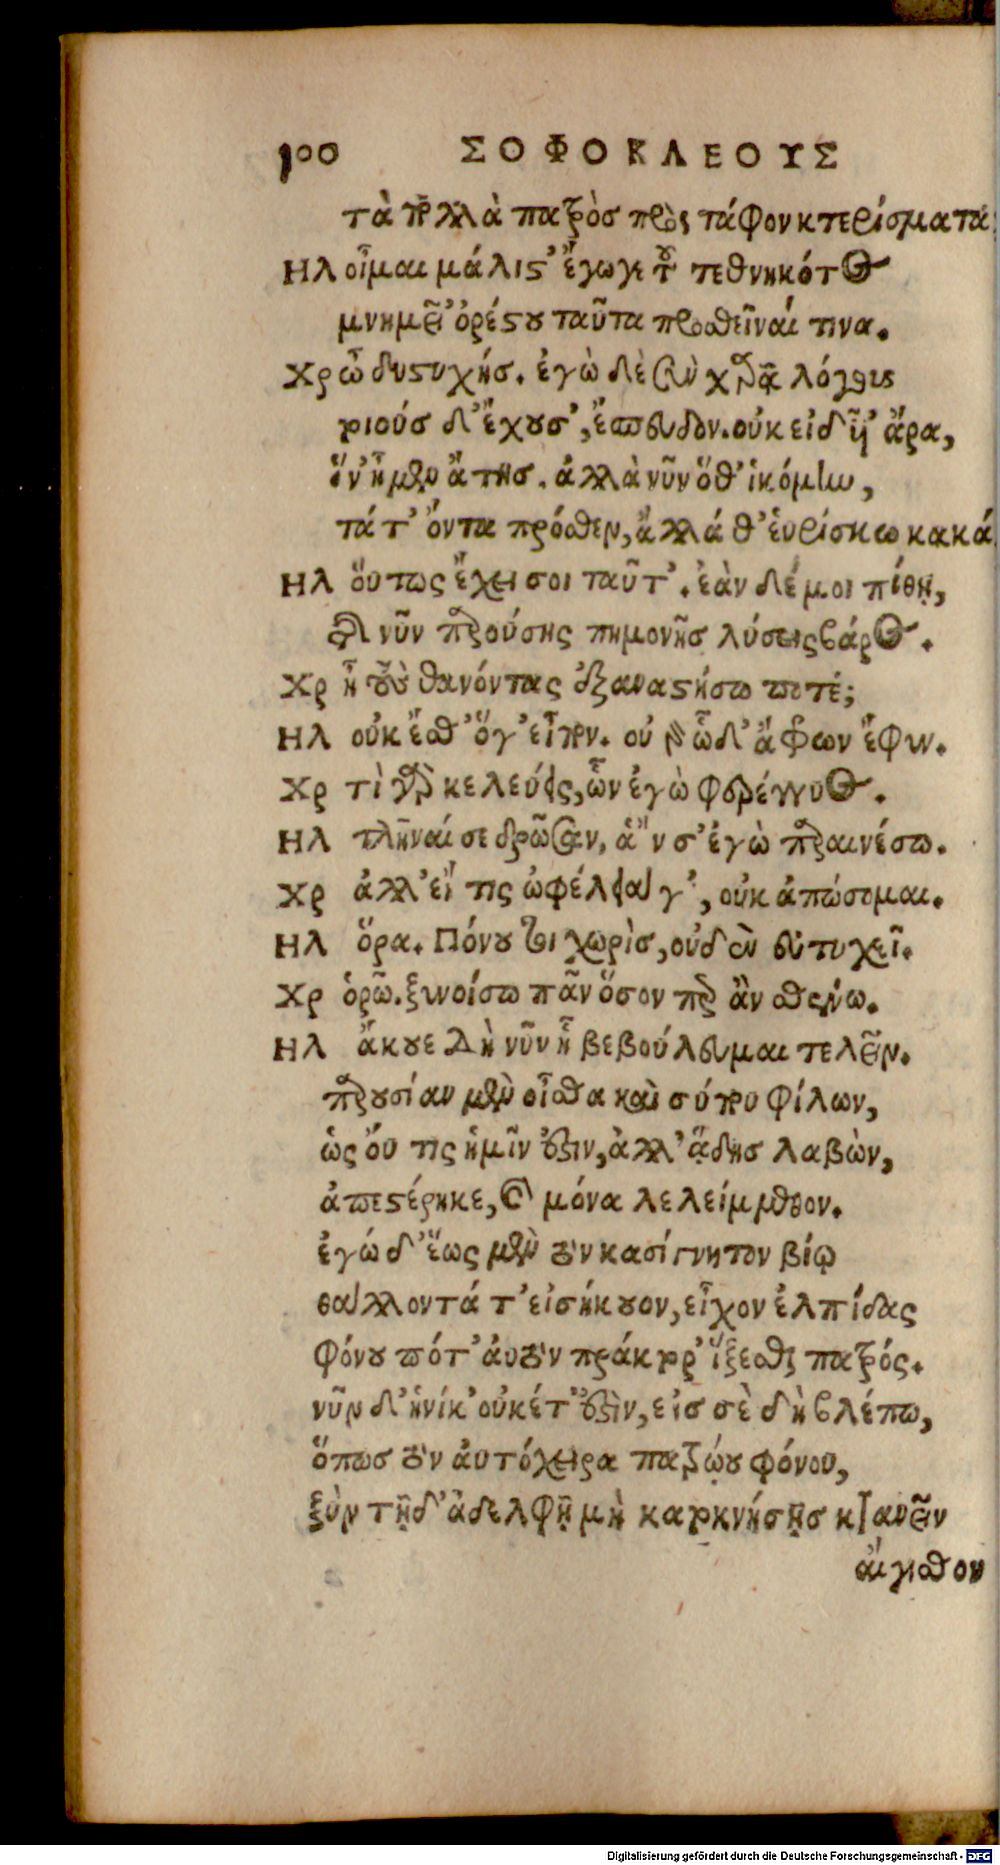 100 ΣΟΦΟΚΛΕΟΥΣ
τὰ πολλὰ πατρὸς πρὸς τάφον κτερίσματα
ΗΛ οἶμαι μάλιστ' ἔγωγε τοῦ τεθνηκότος
μνημεῖ' ὀρέστου ταῦτα προσθεῖναί τινα.
Χρ ὦ δυστυχής. ἐγὼ δὲ σὺν χαρᾷ λόγους
τοιούσδ' ἔχουσ', ἔσπευδον. οὐκ εἰδυῖ' ἄρα,
ἵν' ἦμεν ἄτης. ἀλλὰ νῦν ὅθ' ἱκόμην,
τά τ' ὄντα πρόσθεν, ἄλλά θ' ἑυρίσκω κακά
ΗΛ ὅυτως ἔχει σοι ταῦτ'. ἐὰν δέ μοι πίθῃ,
τῆς νῦν παρούσης πημονῆς λύσεις βάρος.
Χρ ἦ τοὺς θανόντας ἐξαναστήσω ποτέ;
ΗΛ οὐκ ἔσθ' ὅγ' εἶπον. οὐ γὰρ ὧδ' ἄφρων ἔφυν.
Χρ τὶ γὰρ κελεύεις, ὧν ἐγὼ φερέγγυος.
ΗΛ τλῆναί σε δρῶσαν, ἃ ἂν σ' ἐγὼ παραινέσω.
Χρ ἀλλ' εἴ τις ὠφέλειά γ', οὐκ ἀπώσομαι.
ΗΛ ὅρα. Πόνου τοι χωρὶς, οὐδὲν εὐτυχεῖ.
Χρ ὁρῶ. ξυνοίσω πᾶν ὅσον περ ἂν σθένω.
ΗΛ ἄκουε δὴ νῦν ᾗ βεβούλευμαι τελεῖν.
παρουσίαν μὲν οἶσθα καὶ σύ που φίλων,
ὡς ὄυ τις ἡμῖν ἐστιν, ἀλλ' ᾅδης λαβὼν,
ἀπεστέρηκε, καὶ μόνα λελείμμεθον.
ἐγώ δ' ἕως μὲν τὸν κασίγνητον βίῳ
θάλλοντά τ' εἰσήκουον, εἶχον ἐλπίδας
φόνου πότ' ἀυτὸν πράκτορ' ἵξεσθαι πατρός.
νῦν δ' ἡνίκ' οὐκέτ' ἐστὶν, εἰς σὲ δὴ βλέπω,
ὅπως τὸν ἀυτόχειρα πατρῴου φόνου,
ξὺν τῇδ' ἀδελφῇ μὴ κατοκνήσῃς κτανεῖν
αἴγισθον
Digitalisierung gefördert durch die Deutsche Forschungsgemeinschaft - DFG